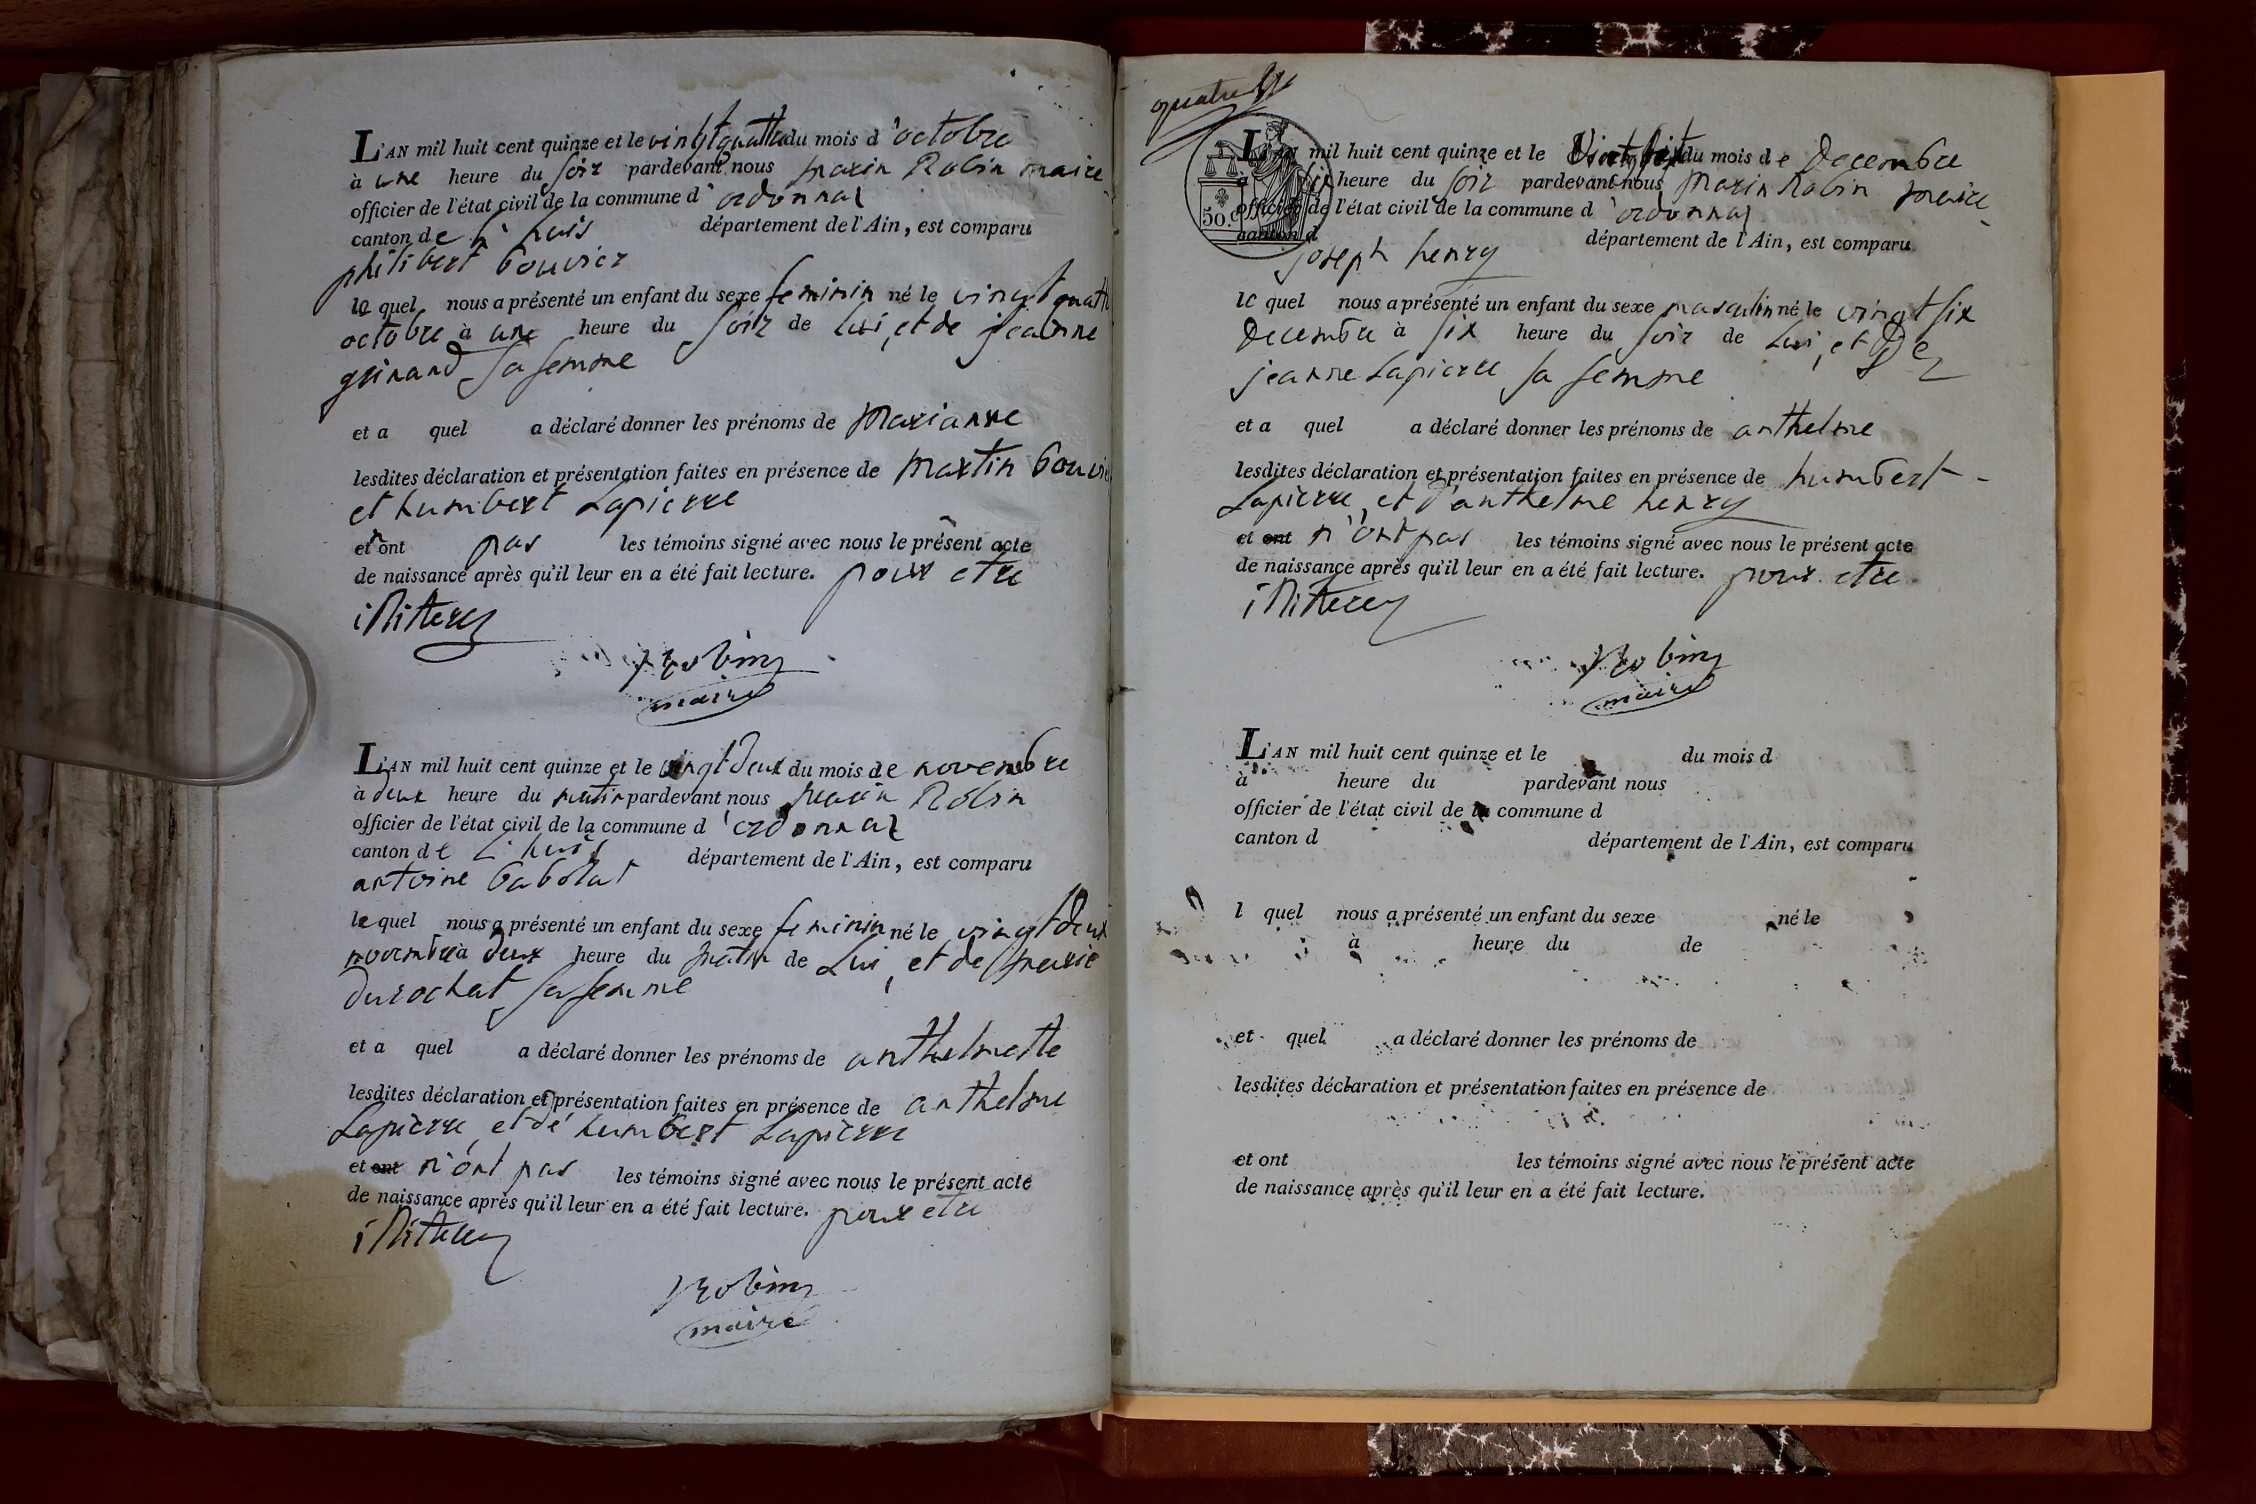 L'AN mil huit cent quinze et le vingt quattre du mois d'octobre
à une heure du soir pardevant nous marin Robin maire
officier de l'état civil de la commune d'ordonnaz
canton de l'huis département de l'Ain, est comparu
philibert bouvier
le quel nous a présenté un enfant du sexe feminin né le vingt quatre
octobre à une heure du soir de lui, et de jeanne
guinand sa femme
et a quel a déclaré donner les prénoms de marianne
lesdites déclaration et présentation faites en présence de martin bouvier
et humbert Lapierre
et n'ont pas les témoins signé avec nous le présent acte
de naissance après qu'il leur en a été fait lecture. pour etre
illitterez
Robin
maire
L'AN mil huit cent quinze et le vingt deux du mois de novembre
à deux heure du matin pardevant nous marin Robin
officier de l'état civil de la commune d'ordonnaz
canton de L'huis département de l'Ain, est comparu
antoine babolat
le quel nous a présenté un enfant du sexe feminin né le vingt deux
novembre à deux heure du matin de Lui, et de marie
durochat sa femme
et a quel a déclaré donner les prénoms de anthelmette
lesdites déclaration et présentation faites en présence de anthelme
Lapierre, et de humbert Lapierre
et ont n'ont pas les témoins signé avec nous le présent acte
de naissance après qu'il leur en a été fait lecture. pour etre
illitterez
Robin
maire
quatre
50. c
L'AN mil huit cent quinze et le vingt six du mois de decembre
à six heure du soir pardevant nous marin Robin maire
officier de l'état civil de la commune d'ordonnaz
canton d département de l'Ain, est comparu
joseph henry
le quel nous a présenté un enfant du sexe masculin né le vingt six
decembre à six heure du soir de Lui, et de
jeanne Lapierre sa femme
et a quel a déclaré donner les prénoms de anthelme
lesdites déclaration et présentation faites en présence de humbert
Lapierre, et d'anthelme henry
et ont n'ont pas les témoins signé avec nous le présent acte
de naissance après qu'il leur en a été fait lecture. pour etre
illitterez
Robin
maire
L'AN mil huit cent quinze et le du mois d
à heure du pardevant nous
officier de l'état civil de la commune d
canton d département de l'Ain, est comparu
l quel nous a présenté un enfant du sexe né le
à heure du de
et quel a déclaré donner les prénoms de
lesdites déclaration et présentation faites en présence de
et ont les témoins signé avec nous le présent acte
de naissance après qu'il leur en a été fait lecture.